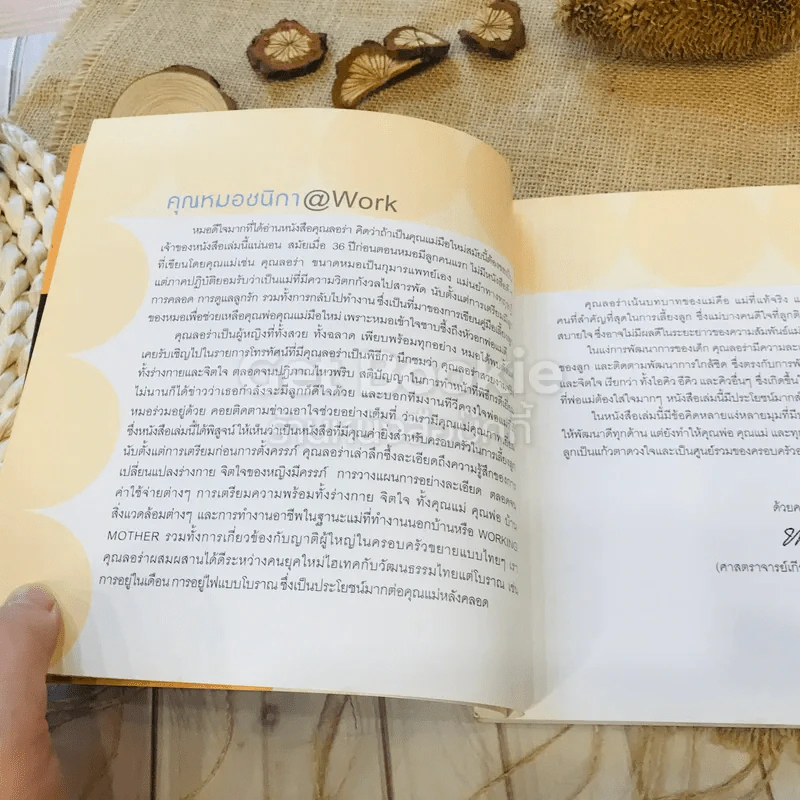 คุณหมอชนิกา @Work
หมอดีใจมากที่ได้อ่านหนังสือคุณลอร่า คิดว่าถ้าเป็นคุณแม่มือใหม่สมัยนี้ต้อง
เจ้าของหนังสือเล่มนี้แน่นอน สมัยเมื่อ 36 ปีก่อนตอนหมอมีลูกคนแรก ไม่มีหนังสือ
ที่เขียนโดยคุณแม่เช่น คุณลอร่า ขนาดหมอเป็นกุมารแพทย์เอง แม่นยำทาง
แต่ภาคปฏิบัติยอมรับว่าเป็นแม่ที่มีความวิตกกังวลไปสารพัด นับตั้งแต่การเตรียม
การคลอด การดูแลลูกรัก รวมทั้งการกลับไปทำงาน ซึ่งเป็นที่มาของการเขียนคู่มือ
ของหมอเพื่อช่วยเหลือคุณพ่อคุณแม่มือใหม่ เพราะหมอเข้าใจซาบซึ้งถึงหัวอก
คุณลอร่าเป็นผู้หญิงที่ทั้งสวย ทั้งฉลาด เพียบพร้อมทุกอย่าง หมอได้พบ
เคยรับเชิญไปในรายการโทรทัศน์ที่มีคุณลอร่าเป็นพิธีกร นึกชมว่า คุณลอร่าสวยงาม
ทั้งร่างกายและจิตใจ ตลอดจนปฏิภาณไหวพริบ สติปัญญาในการทำหน้าที่พิธีกร
ไม่นานก็ได้ข่าวว่าเธอกำลังจะมีลูกก็ดีใจด้วย และบอกทีมงานทีวีดวงใจพ่อแม่
หมอร่วมอยู่ด้วย คอยติดตามข่าวเอาใจช่วยอย่างเต็มที่ ว่าเธอมีคุณแม่คุณภาพ
ซึ่งหนังสือเล่มนี้ได้พิสูจน์ให้เห็นว่าเป็นหนังสือที่มีคุณค่ายิ่งสำหรับครอบครัวในการเลี้ยงลูก
นับตั้งแต่การเตรียมก่อนการตั้งครรภ์ คุณลอร่าเล่าลึกซึ้งละเอียดถึงความรู้สึกของการ
เปลี่ยนแปลงร่างกาย จิตใจของหญิงมีครรภ์ การวางแผนการอย่างละเอียด ตลอดจน
ค่าใช้จ่ายต่างๆ การเตรียมความพร้อมทั้งร่างกาย จิตใจ ทั้งคุณแม่ คุณพ่อ บ้าน
สิ่งแวดล้อมต่างๆ และการทำงานอาชีพในฐานะแม่ที่ทำงานนอกบ้านหรือ WORKING
MOTHER รวมทั้งการเกี่ยวข้องกับญาติผู้ใหญ่ในครอบครัวขยายแบบไทยๆ เรา
คุณลอร่าผสมผสานได้ดีระหว่างคนยุคใหม่ไฮเทคกับวัฒนธรรมไทยแต่โบราณ เช่น
การอยู่เดือน การอยู่ไฟแบบโบราณ ซึ่งเป็นประโยชน์มากต่อคุณแม่หลังคลอด
คุณลอร่าเน้นบทบาทของแม่คือ แม่ที่แท้จริง
คนที่สำคัญที่สุดในการเลี้ยงลูก ซึ่งแม่บางคนดีใจที่ลูก
สบายใจ ซึ่งอาจไม่มีผลดีในระยะยาวของความสัมพันธ์
ในแง่การพัฒนาการของเด็ก คุณลอร่ามีความ
ของลูก และติดตามพัฒนาการใกล้ชิด ซึ่งตรงกับการ
และจิตใจ เรียกว่า ทั้งไอคิว อีคิว และคิวอื่นๆ ซึ่งเกิดขึ้น
ที่พ่อแม่ต้องใส่ใจมากๆ หนังสือเล่มนี้มีประโยชน์มาก
ในหนังสือเล่มนี้มีข้อคิดหลายแง่หลายมุมที่
ให้พัฒนาดีทุกด้าน แต่ยังทำให้คุณพ่อ คุณแม่ และ
ลูกเป็นแก้วตาดวงใจและเป็นศูนย์รวมของครอบครัว
ด้วย
(ศาสตราจารย์